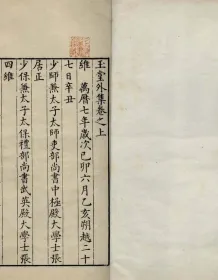 玉堂外集卷之上
維 萬曆七年歲次己卯六月乙亥朔越二十
七日辛丑
少師兼太子太師吏部尚書中極殿大學士張
居正
少保兼太子太保禮部尚書武英殿大學士張
四維